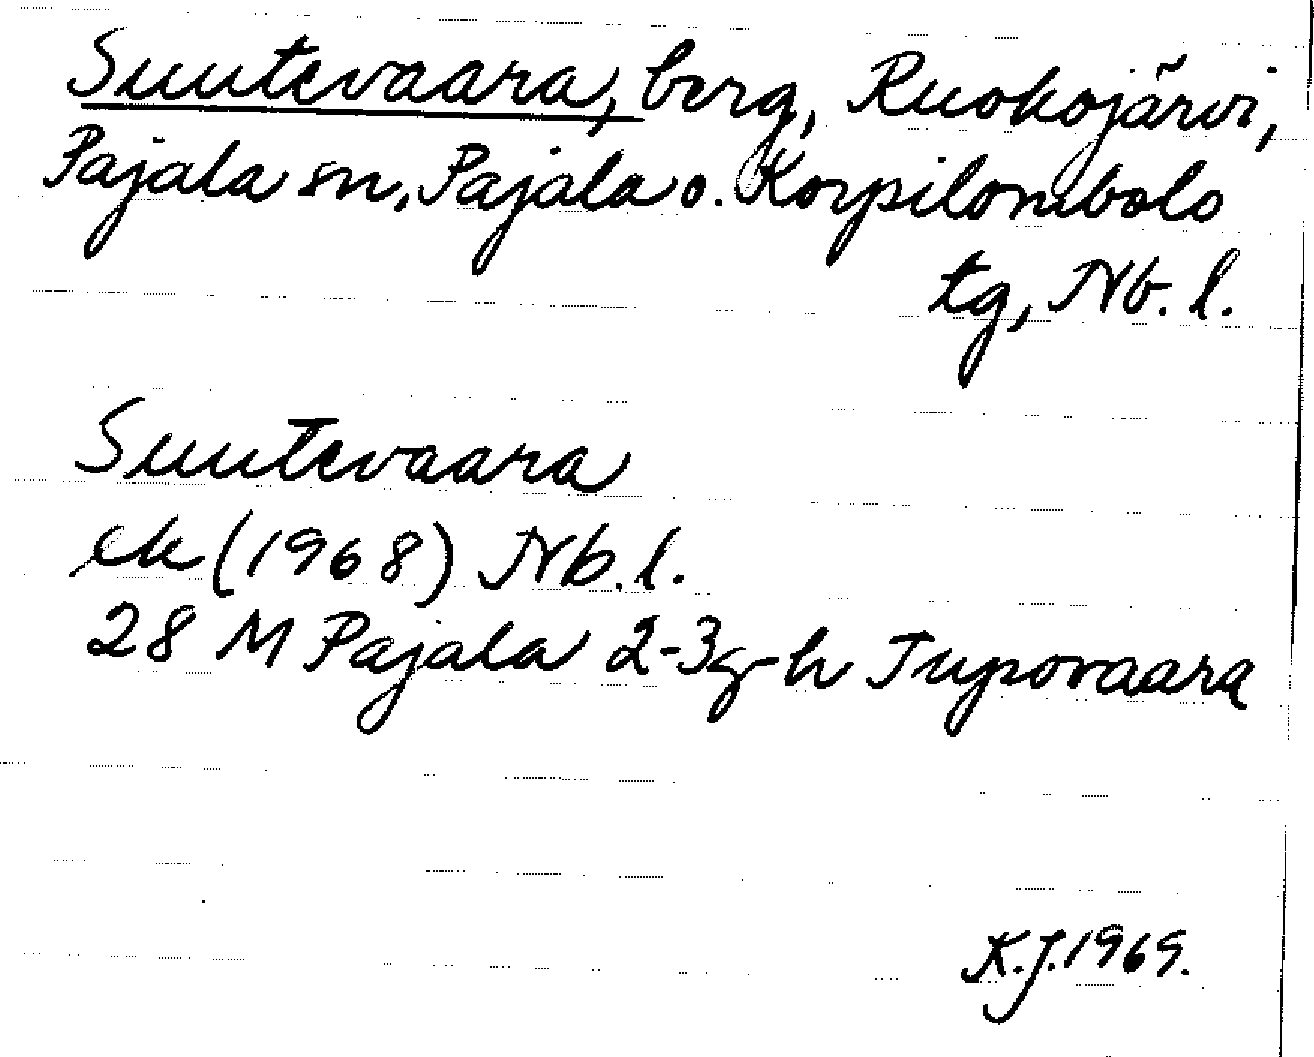 Suutevaara, berg, Ruokojärvi,
Pajala sn, Pajala o. Korpilombolo
tg, Nb. l.
Suutevaara
ek (1968) Nb. l.
28 M Pajala 2-3g-h Jupovaara
K.J. 1969.